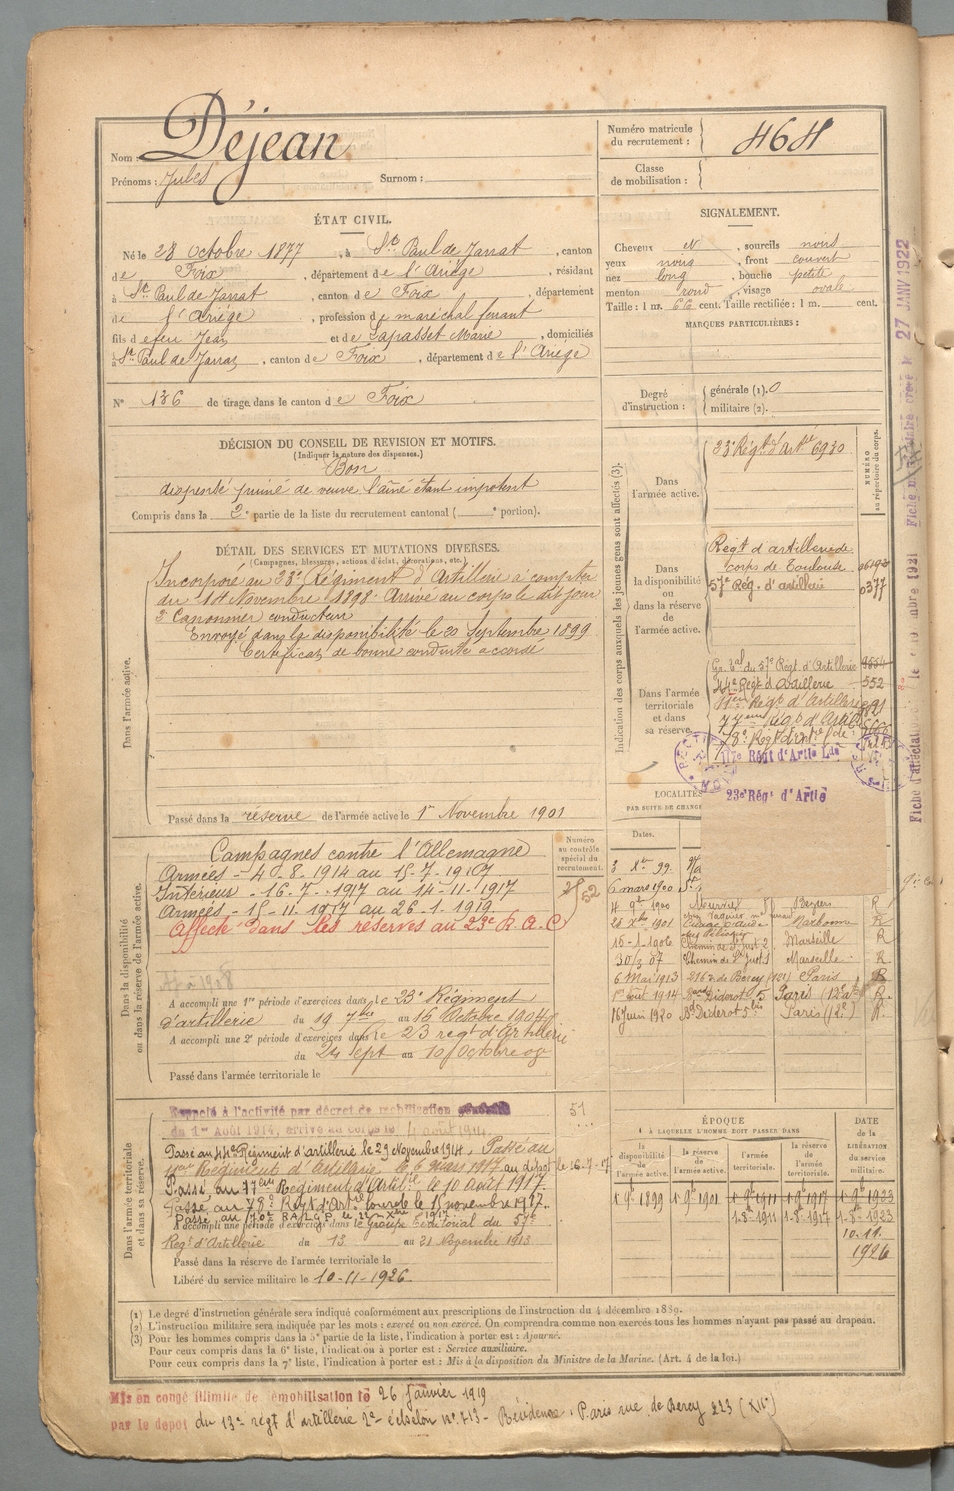 Nom : Déjean
Prénoms : Jules Surnom :
Numéro matricule du recrutement : 464
Classe de mobilisation :
ÉTAT CIVIL.
Né le 28 Octobre 1877, à St Paul de Jarrat, canton
de Foix, département de l'Ariège, résidant
à St Paul de Jarrat, canton de Foix, département
de l'Ariège, profession de maréchal ferrant
fils de feu Jean et de Lapasset Marie, domiciliés
à St Paul de Jarrat, canton de Foix, département de l'Ariège
N° 136 de tirage dans le canton de Foix
SIGNALEMENT.
Cheveux et, sourcils noirs
yeux noirs, front couvert
nez long, bouche petite
menton rond, visage ovale
Taille : 1 m. 66 cent. Taille rectifiée : 1 m. cent.
MARQUES PARTICULIÈRES :
Degré d'instruction : générale (1). 0
militaire (2).
DÉCISION DU CONSEIL DE REVISION ET MOTIFS.
(Indiquer la nature des dispenses.)
Bon
dispensé puiné de veuve l'aîné étant impotent
Compris dans la 2e partie de la liste du recrutement cantonal ( e portion).
DÉTAIL DES SERVICES ET MUTATIONS DIVERSES.
(Campagnes, blessures, actions d'éclat, décorations, etc.)
Dans l'armée active.
Incorporé au 23e Régiment d'Artillerie à compter
du 14 Novembre 1898. Arrivé au corps le dit jour
2e Canonnier conducteur
Envoyé dans la disponibilité le 20 Septembre 1899
Certificat de bonne conduite accordé
Passé dans la réserve de l'armée active le 1er Novembre 1901
Indication des corps auxquels les jeunes gens sont affectés (3).
NUMÉRO au répertoire du corps.
Dans l'armée active.
23e Régt d'Artie 6930
Dans la disponibilité ou dans la réserve de l'armée active.
Régt d'artillerie de
corps de Toulouse
57e Rég. d'artillerie 0377
Dans l'armée territoriale et dans sa réserve.
Gr. Tal du 57e Régt d'Artillerie
44e Régt d'Artillerie 552
Régt d'Artillerie
77eme Régt d'Artie
78e Régt d'Artie
117e Régt d'Artie Lde
23e Régt d'Artie
LOCALITÉS
PAR SUITE DE CHANGE
Dates.
3 Xre 99
6 mars 1900
4 9re 1900 Béziers R
1901 Narbonne R
15-1-1906 Chemin de St Just 2 Marseille R
30/3 07 Chemin de St Just 1 Marseille R
6 Mai 1913 216 r. de Bercy (12e) Paris R
1er Août 1914 Bd Diderot 5 Paris (12e) R.
16 Juin 1920 Bd Diderot 5 bis Paris (12e) R.
Dans la disponibilité ou dans la réserve de l'armée active.
Numéro au contrôle spécial du recrutement.
Campagnes contre l'Allemagne
Armées - 4-8-1914 au 15-7-1917
Intérieur - 16-7-1917 au 14-11-1917
Armées - 15-11-1917 au 26-1-1919
Affecté dans les réserves au 23e R.A.C
A accompli une 1re période d'exercices dans le 23e Régiment
d'artillerie du 19 7bre au 16 Octobre 1904
A accompli une 2e période d'exercices dans le 23 regt d'Artillerie
du 24 sept au 10 Octobre
Passé dans l'armée territoriale le
Dans l'armée territoriale et dans sa réserve.
Rappelé à l'activité par décret de mobilisation générale
du 1er Août 1914, arrivé au corps le 4 août 1914.
51
Passé au 44e Régiment d'artillerie le 29 Novembre 1914. Passé au
Régiment d'Artillerie le 6 Mars 1917 au dépôt le 16-7-17
Passé au 77eme Régiment d'Artillerie le 10 Août 1917.
Passé au 78e Régt d'Artie lourde le 15 novembre 1917.
A accompli une période d'exercices dans le Groupe Territorial du 57e
Régt d'Artillerie du 13 au 21 Novembre 1913
Passé dans la réserve de l'armée territoriale le
Libéré du service militaire le 10-11-1926.
ÉPOQUE
À LAQUELLE L'HOMME DOIT PASSER DANS
la disponibilité de l'armée active.
la réserve de l'armée active.
l'armée territoriale.
la réserve de l'armée territoriale.
DATE de la LIBÉRATION du service militaire.
1 9bre 1899 1 9bre 1901 1 9bre 1911 1 9bre 1917 1 9bre 1923
1-8-1911 1-8-1917 1-8-1923
10.11.
1926
(1) Le degré d'instruction générale sera indiqué conformément aux prescriptions de l'instruction du 4 décembre 1889.
(2) L'instruction militaire sera indiquée par les mots : exercé ou non exercé. On comprendra comme non exercés tous les hommes n'ayant pas passé au drapeau.
(3) Pour les hommes compris dans la 5e partie de la liste, l'indication à porter est : Ajourné.
Pour ceux compris dans la 6e liste, l'indication à porter est : Service auxiliaire.
Pour ceux compris dans la 7e liste, l'indication à porter est : Mis à la disposition du Ministre de la Marine. (Art. 4 de la loi.)
Mis en congé illimité de démobilisation le 26 Janvier 1919
par le dépôt du 13e régt d'artillerie 2e échelon n° 713 - Résidence. Paris rue de Bercy 223 (XIIe)
27 JANV 1922